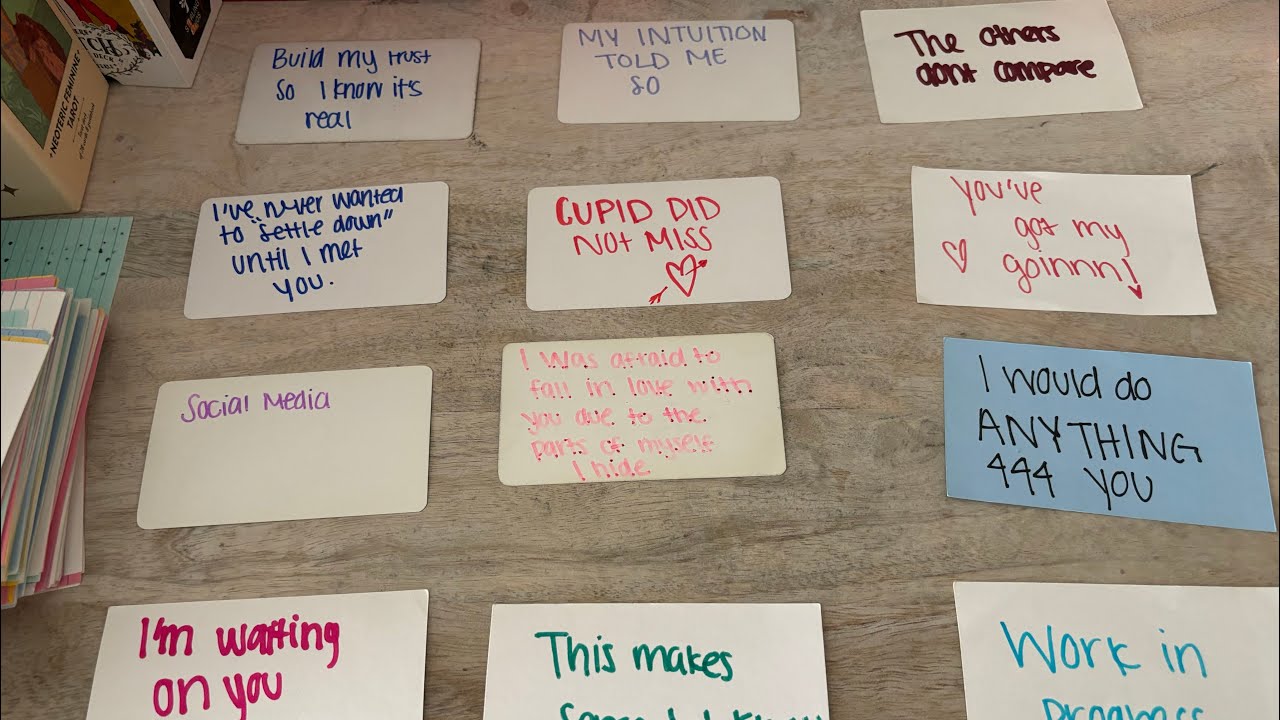 NEOTERIC FEMININE
TAROT
Build my trust
So I know it's
real
MY INTUITION
TOLD ME
SO
The others
dont compare
I've never wanted
to "settle down"
until I met
you.
CUPID DID
NOT MISS
You've
got my
goinnn!
Social Media
I was afraid to
fall in love with
you due to the
parts of myself
I hide
I would do
ANYTHING
444 YOU
I'm waiting
on you
This makes
Work in
progress